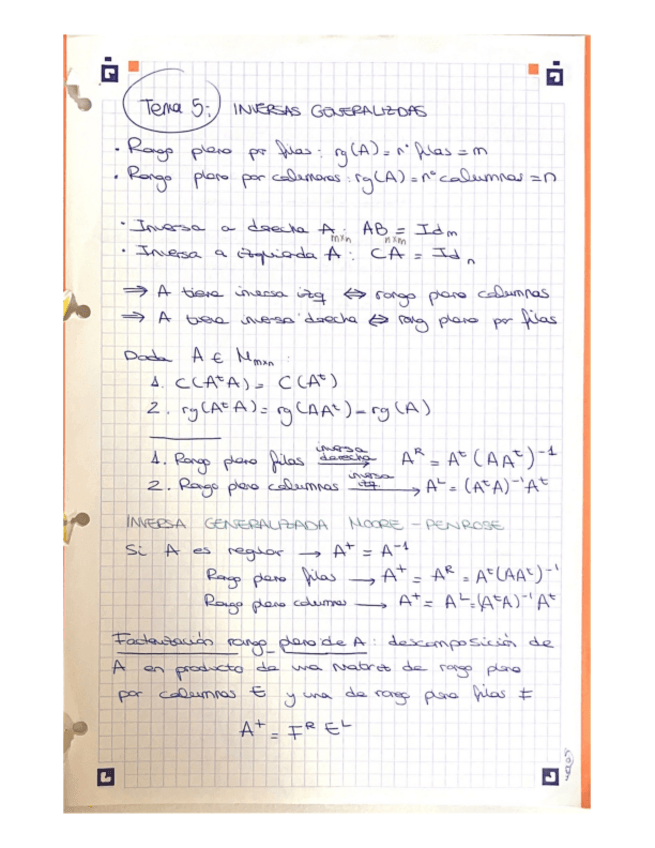 Tema 5: INVERSAS GENERALIZADAS
• Rango pleno por filas: rg(A) = nº filas = m
• Rango pleno por columnas: rg(A) = nº columnas = n
• Inversa a derecha A: AB = Id_m
m×n n×m
• Inversa a izquierda A: CA = Id_n
⇒ A tiene inversa izq ⇔ rango pleno columnas
⇒ A tiene inversa derecha ⇔ rang pleno por filas
Dada A ∈ M_{m×n}:
1. C(A^tA) = C(A^t)
2. rg(A^tA) = rg(AA^t) = rg(A)
1. Rango pleno filas inversa derecha → A^R = A^t(AA^t)^{-1}
2. Rango pleno columnas inversa izq → A^L = (A^tA)^{-1}A^t
INVERSA GENERALIZADA MOORE-PENROSE
Si A es regular → A^+ = A^{-1}
Rango pleno filas → A^+ = A^R = A^t(AA^t)^{-1}
Rango pleno columnas → A^+ = A^L = (A^tA)^{-1}A^t
Factorización rango pleno de A: descomposición de
A en producto de una matriz de rango pleno
por columnas E y una de rango pleno filas F
A^+ = F^R E^L